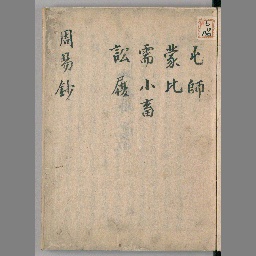 屯師
蒙比
需小畜
訟履
周易鈔